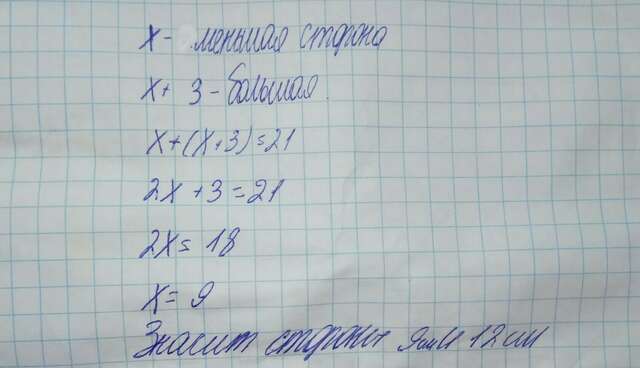 x - меньшая сторона
x + 3 - большая
x+(x+3)=21
2x+3=21
2x=18
x=9
Значит стороны 9см и 12см